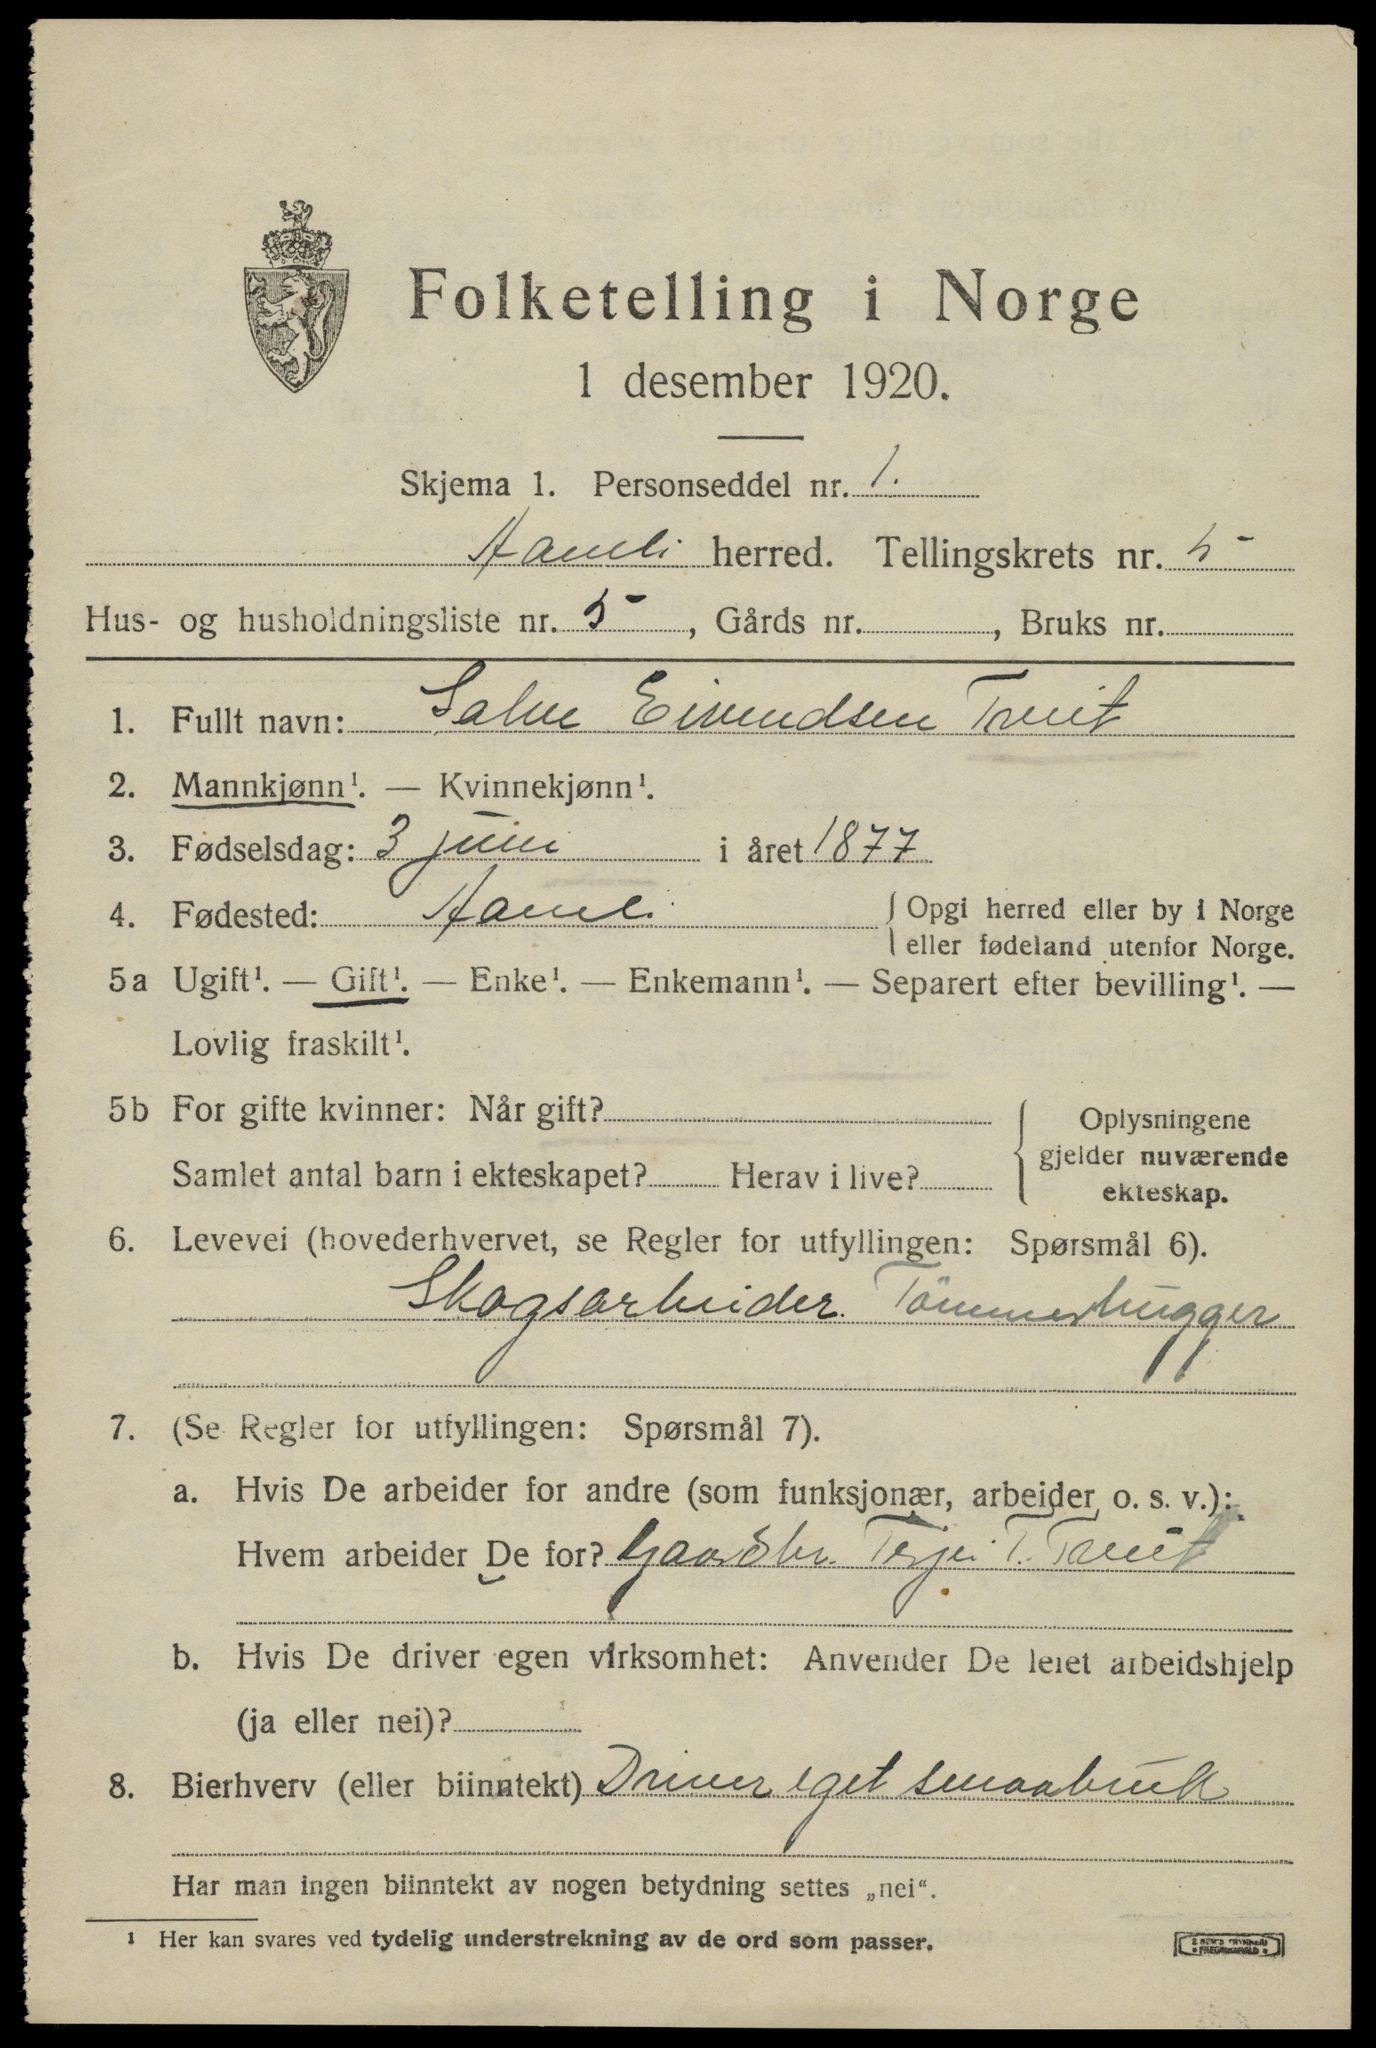 Folketelling i Norge
1 desember 1920.
Skjema 1. Personseddel nr. 1.
Aamli herred. Tellingskrets nr. 5
Hus- og husholdningsliste nr. 5, Gårds nr. , Bruks nr.
1. Fullt navn: Salve Eivendsen Treit
2. Mannkjønn¹. — Kvinnekjønn¹.
3. Fødselsdag: 3 juni i året 1877
4. Fødested: Aamli { Opgi herred eller by i Norge
eller fødeland utenfor Norge.
5a Ugift¹. — Gift¹. — Enke¹. — Enkemann¹. — Separert efter bevilling¹. —
Lovlig fraskilt¹.
5b For gifte kvinner: Når gift?
Samlet antal barn i ekteskapet? Herav i live?
{ Oplysningene
gjelder nuværende
ekteskap.
6. Levevei (hovederhvervet, se Regler for utfyllingen: Spørsmål 6).
Skogsarbeider. Tömmerhugger
7. (Se Regler for utfyllingen: Spørsmål 7).
a. Hvis De arbeider for andre (som funksjonær, arbeider o. s. v.):
Hvem arbeider De for? Gaardbr. Terjei T. Treit
b. Hvis De driver egen virksomhet: Anvender De leiet arbeidshjelp
(ja eller nei)?
8. Bierhverv (eller biinntekt) Driver eget smaabruk
Har man ingen biinntekt av nogen betydning settes „nei“.
¹ Her kan svares ved tydelig understrekning av de ord som passer.